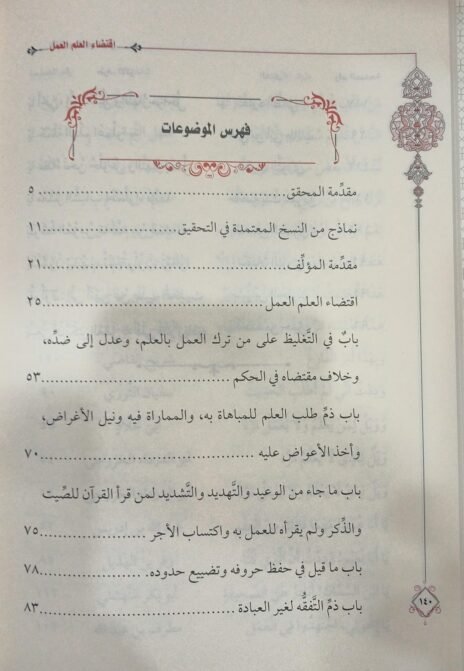 اقتضاء العلم العمل
فهرس الموضوعات
مقدِّمة المحقق ................ ٥
نماذج من النسخ المعتمدة في التحقيق ................ ١١
مقدِّمة المؤلِّف ................ ٢١
اقتضاء العلم العمل ................ ٢٥
بابٌ في التَّغليظ على من ترك العمل بالعلم، وعدل إلى ضدِّه،
وخلاف مقتضاه في الحكم ................ ٥٣
باب ذمِّ طلب العلم للمباهاة به، والمماراة فيه ونيل الأغراض،
وأخذ الأعواض عليه ................ ٧٠
باب ما جاء من الوعيد والتَّهديد والتَّشديد لمن قرأ القرآن للصِّيت
والذِّكر ولم يقرأه للعمل به واكتساب الأجر ................ ٧٥
باب ما قيل في حفظ حروفه وتضييع حدوده. ................ ٧٨
باب ذمِّ التَّفقُّه لغير العبادة ................ ٨٣
١٤٠